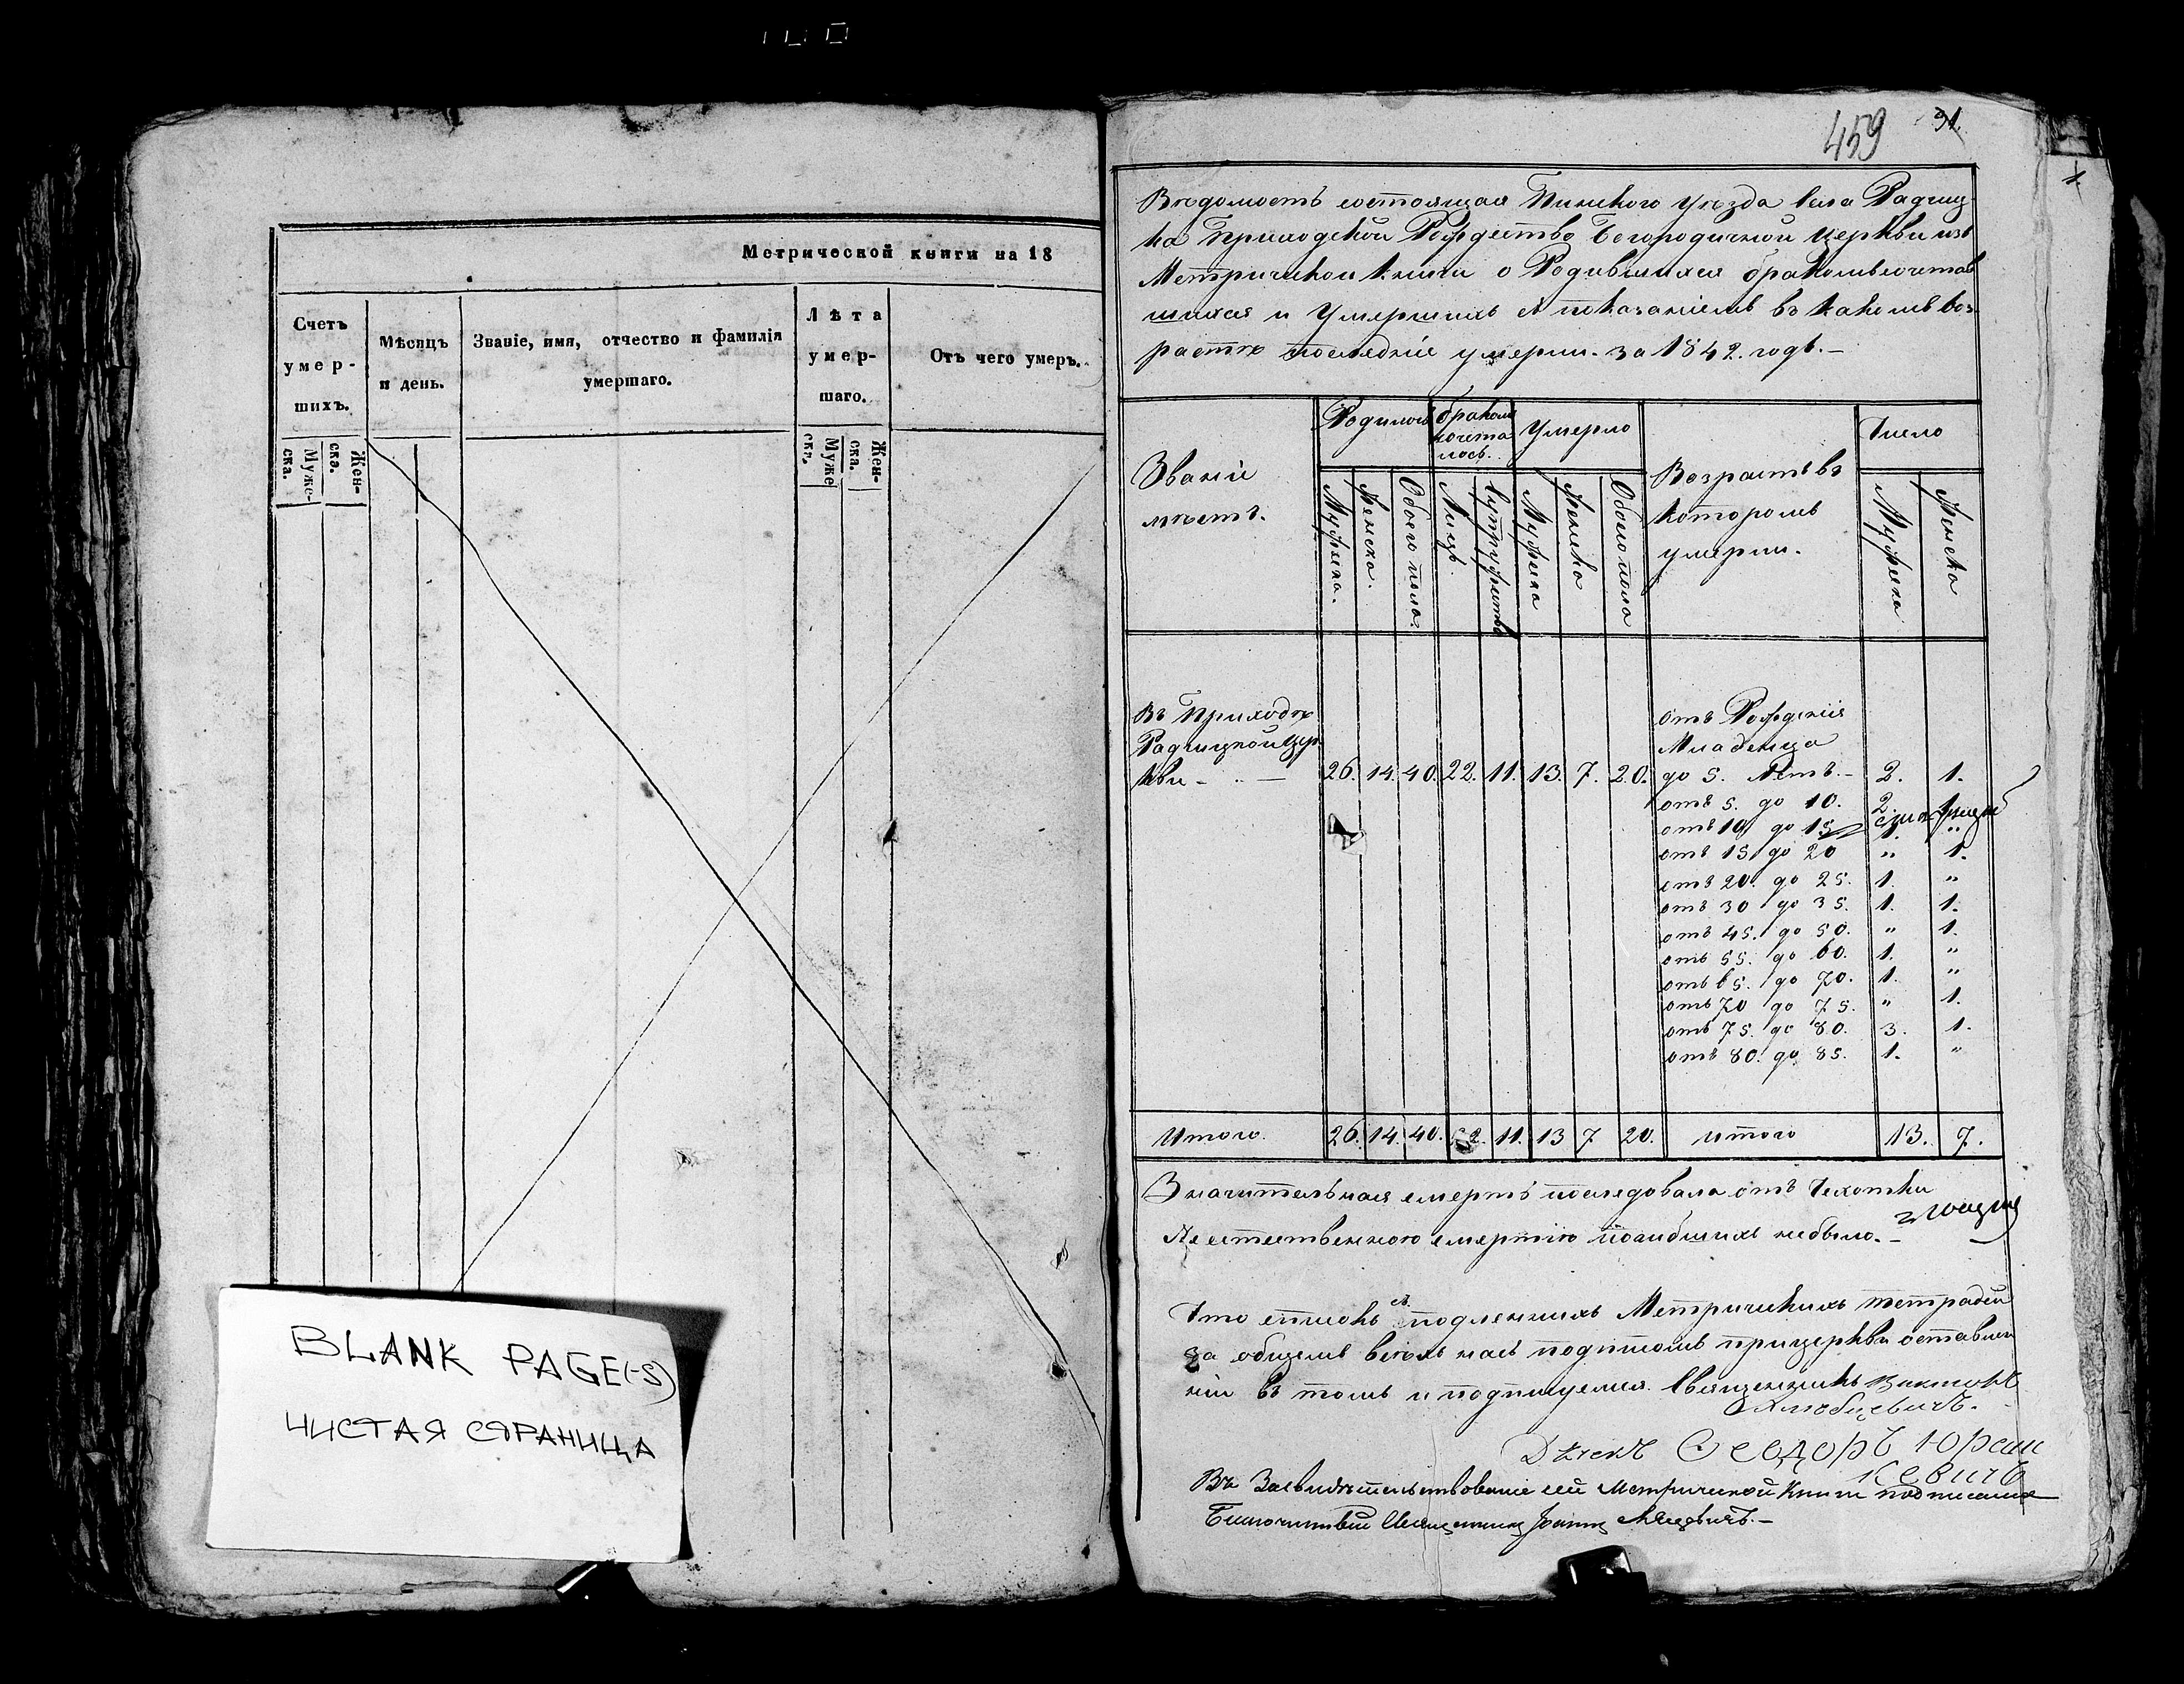 Метрической книги на 18
Счетъ умер- шихъ.
Муже- ска.
Жен- ска.
Мѣсяцъ и день.
Званіе, имя, отчество и фамилія умершаго.
Лѣта умер- шаго.
Муже ска.
Жен- ска.
Отъ чего умеръ.
BLANK PAGE(-S)
ЧИСТАЯ СТРАНИЦА
459 31.
1.
Вѣдомость состоящая Пинскаго Уѣзда села Радчиц-
ка Приходской Рождество Богородичной Церкви изъ
Метрической книги о Родившихся бракомъ сочетав
шихся и Умершихъ съ показаніемъ въ какомъ воз-
растѣ последніе умерли. за 1842. годъ.-
Званіе мѣстъ.
Родилось
Мужеска.
Женска.
Обоего пола.
бракомъ сочета лось.
Лицъ.
Супружествъ
Умерло
Мужеска
Женска
Обоего пола
Возрастъ въ
которомъ
умерли.
Число
Мужеска
Женска
Въ Приходѣ
Радчицкой Цер-
кви - 26. 14. 40. 22. 11. 13. 7. 20.
отъ Рожденія
Младенца
до 5. Лѣтъ.- 2. 1.
отъ 5. до 10. 2 1
отъ 10 до 15 1. "
отъ 15 до 20 " 1.
отъ 20. до 25. 1. "
отъ 30 до 35. 1. 1.
отъ 45. до 50. " 1.
отъ 55. до 60. 1. "
отъ 65. до 70. 1. "
отъ 70 до 75. " 1.
отъ 75. до 80. 3. 1.
отъ 80. до 85. 1. "
Итого. 26. 14. 40. 22. 11. 13 7 20. итого 13. 7.
Значительная смерть последовала отъ Чахотки
Неестественною смертію погибшихъ небыло.-
Что списокъ съ подленныхъ Метрическихъ тетрадей
за общемъ всѣхъ насъ подписомъ прицеркви оставлен
ніи въ томъ и подписуемся. Священникъ
Дьячекъ Феодоръ Юраш
кевичъ
Въ Засвидѣтельствованіе сей Метрической Книги подписался
Благочинный Священникъ Іоаннъ